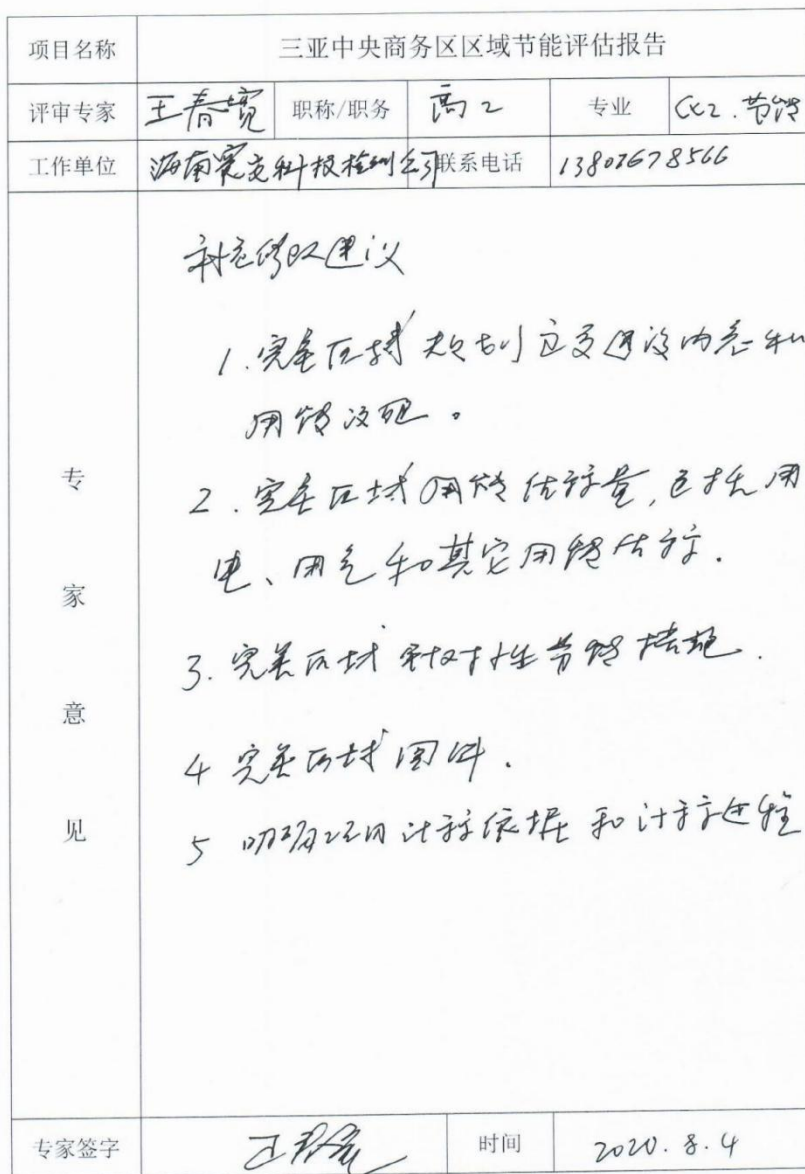 项目名称 三亚中央商务区区域节能评估报告
评审专家 王春宽 职称/职务 高工 专业 化工.节能
工作单位 海南 科技检测公司 联系电话 13807678566
专家意见
补充修改建议
1.完善区域规划 建设内容和
用能 。
2.完善区域用能估算量,包括用
电、用气和其它用能估算.
3.完善区域针对性节能措施.
4 完善区域图件.
5 明确 计算依据和计算过程
专家签字 时间 2020.8.4